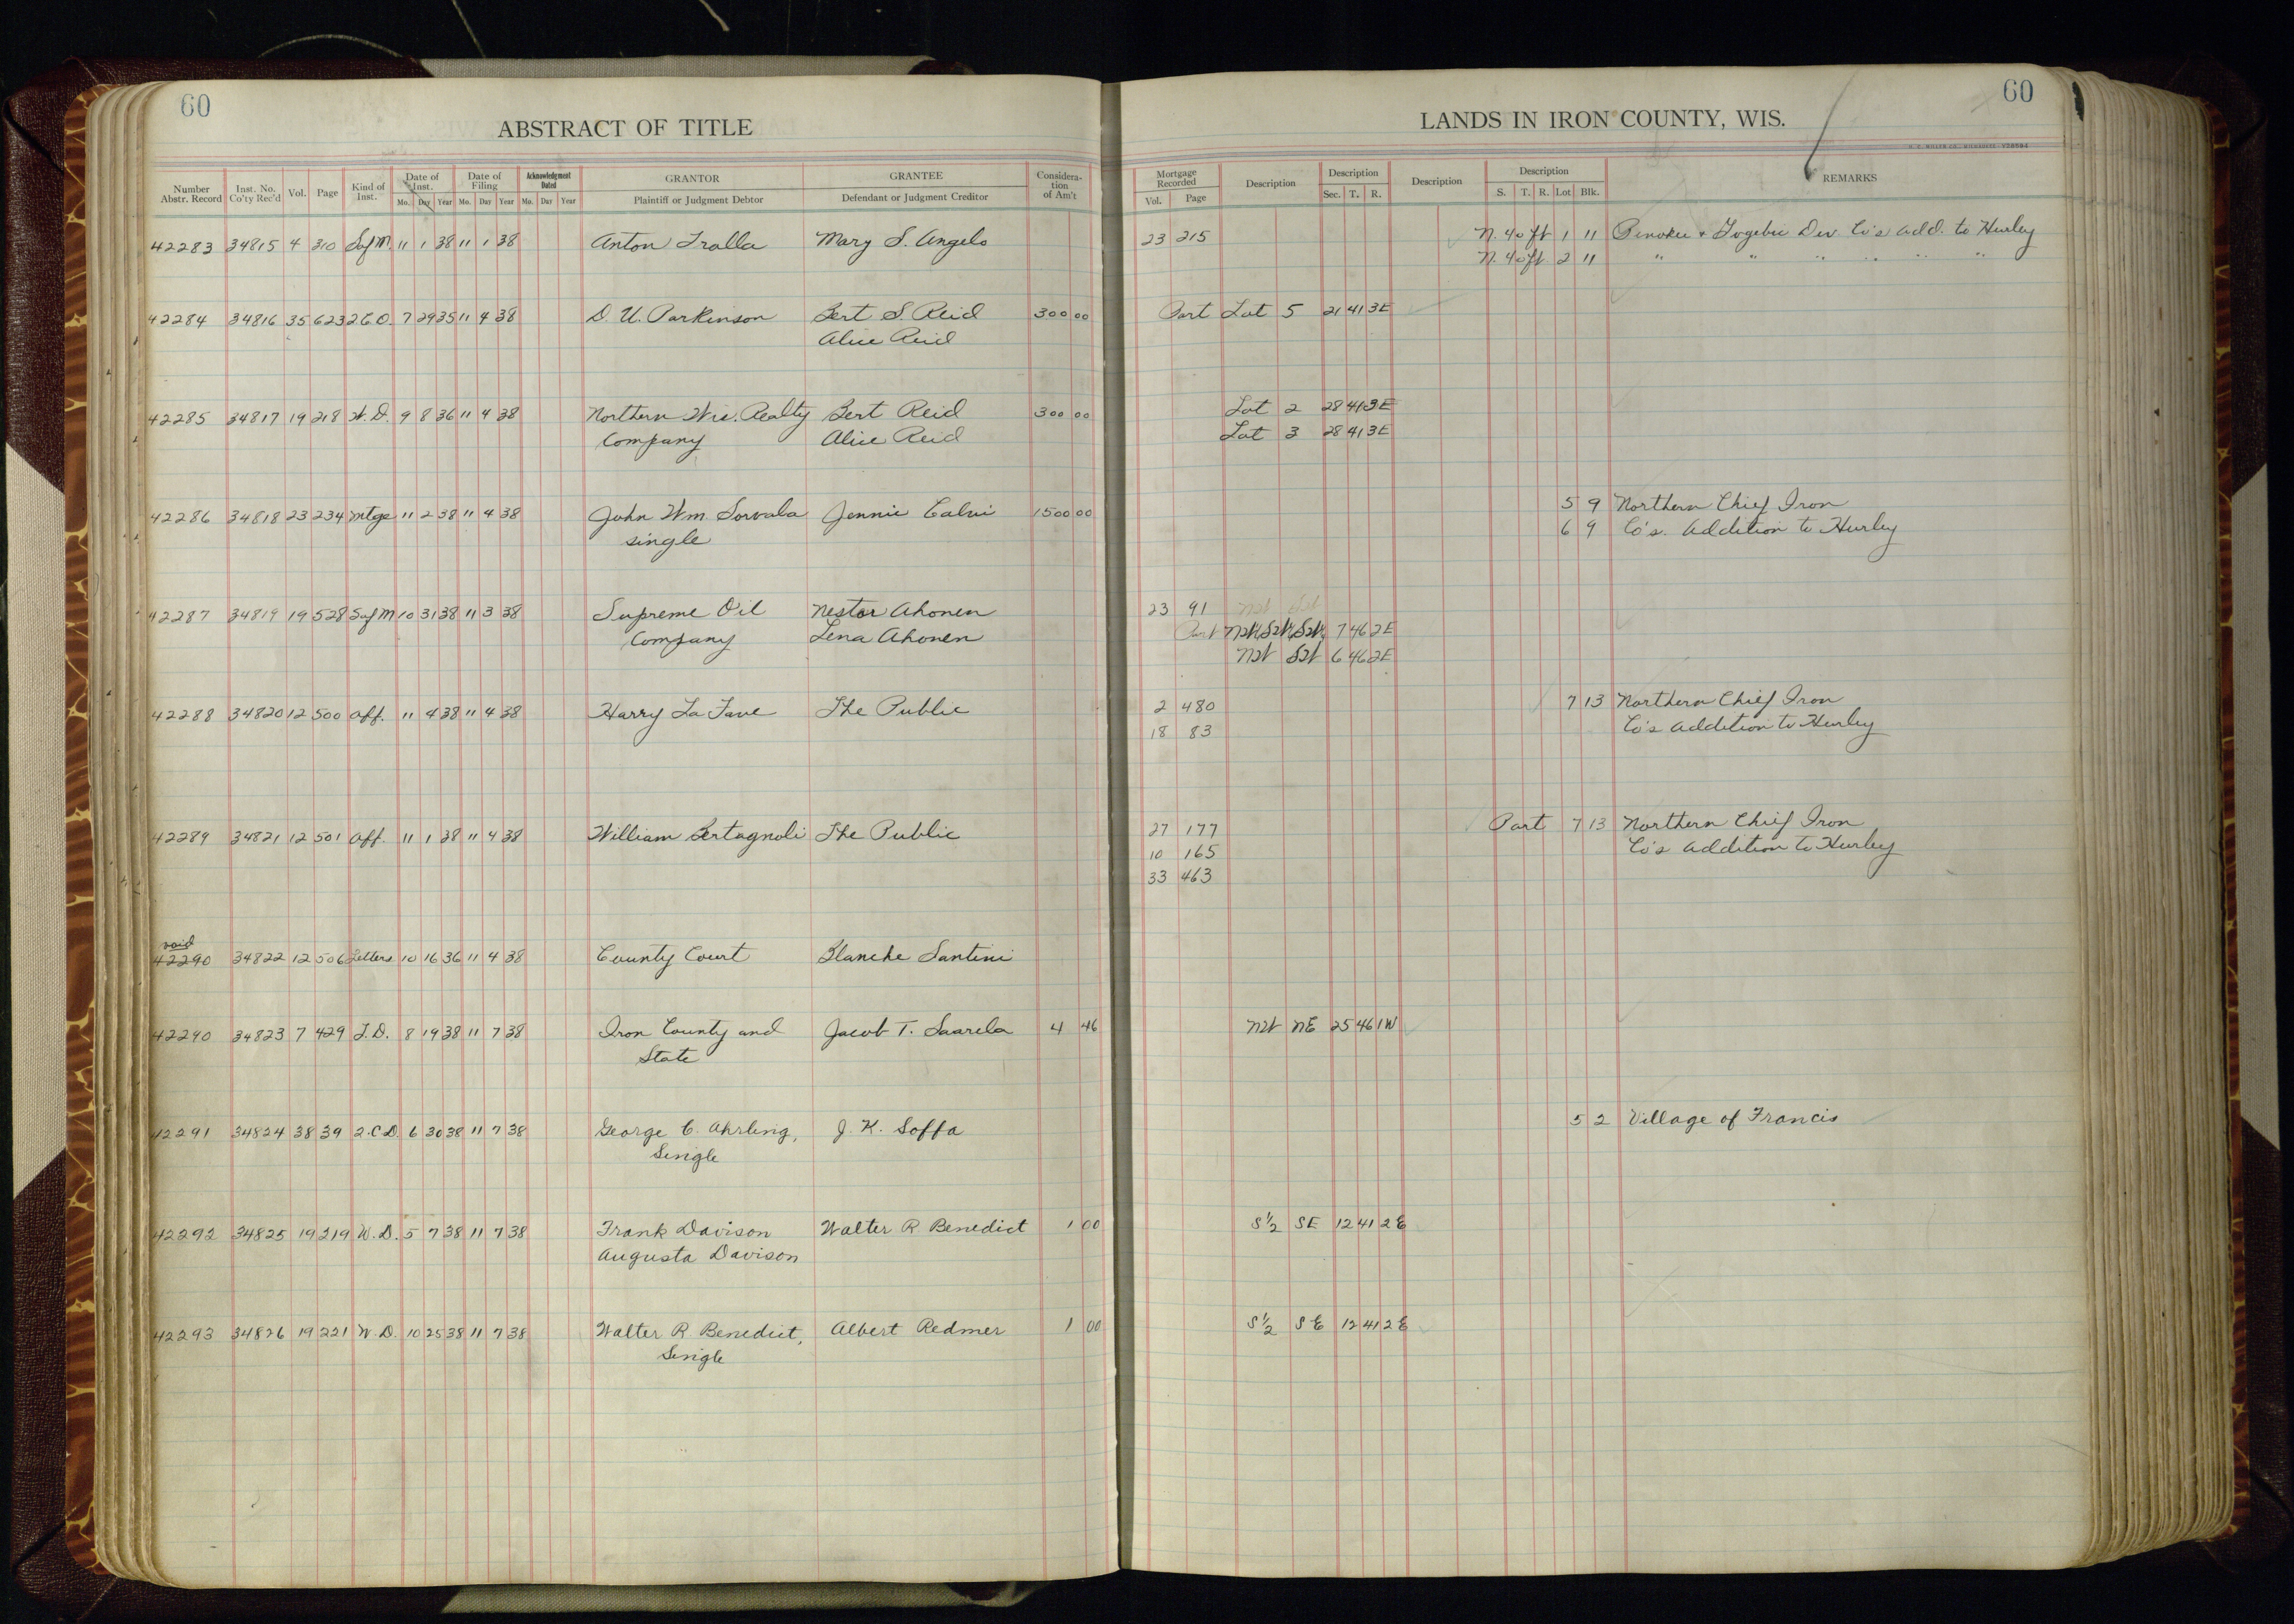 60
ABSTRACT OF TITLE
Number Abstr. Record Inst. No. Co'ty Rec'd Vol. Page Kind of Inst. Date of Inst. Mo. Day Year Date of Filing Mo. Day Year Acknowledgment Dated Mo. Day Year GRANTOR Plaintiff or Judgment Debtor GRANTEE Defendant or Judgment Creditor Considera- tion of Am't
42283 34815 4 310 Sof M. 11 1 38 11 1 38 Anton Tralla Mary S. Angelo
42284 34816 35 623 2.C.D. 7 29 35 11 4 38 D. U. Parkinson Bert S. Reid 300 00
Alice Reid
42285 34817 19 218 W.D. 9 8 36 11 4 38 Northern Wis. Realty Bert Reid 300 00
Company Alice Reid
42286 34818 23 234 Mtge 11 2 38 11 4 38 John Wm. Sorvala Jennie Calvi 1500 00
single
42287 34819 19 528 Sof M 10 31 38 11 3 38 Supreme Oil Nestor Ahonen
Company Lena Ahonen
42288 34820 12 500 Aff. 11 4 38 11 4 38 Harry La Fave The Public
42289 34821 12 501 Aff. 11 1 38 11 4 38 William Bertagnoli The Public
void
42290 34822 12 506 Letters 10 16 36 11 4 38 County Court Blanche Santini
42290 34823 7 429 T.D. 8 19 38 11 7 38 Iron County and Jacob T. Saarela 4 46
State
42291 34824 38 39 2.C.D. 6 30 38 11 7 38 George C. Ahrling, J. K. Soffa
Single
42292 34825 19 219 W.D. 5 7 38 11 7 38 Frank Davison Walter R. Benedict 1 00
Augusta Davison
42293 34826 19 221 W.D. 10 25 38 11 7 38 Walter R. Benedict, Albert Redmer 1 00
Single
60
LANDS IN IRON COUNTY, WIS.
Mortgage Recorded Vol. Page Description Description Sec. T. R. Description Description S. T. R. Lot Blk. REMARKS
23 215 N. 40 ft 1 11 Penokee & Gogebic Dev. Co's Add. to Hurley
N. 40 ft. 2 11 " " " " " "
Part Lot 5 21 41 3E
Lot 2 28 41 3E
Lot 3 28 41 3E
5 9 Northern Chief Iron
6 9 Co's. Addition to Hurley
23 91 NW SW
Part NW¼SW¼SW¼ 7 46 2E
NW SW 6 46 2E
2 480 7 13 Northern Chief Iron
18 83 Co's Addition to Hurley
27 177 Part 7 13 Northern Chief Iron
10 165 Co's Addition to Hurley
33 463
NW NE 25 46 1W
5 2 Village of Francis
S½ SE 12 41 2E
S½ SE 12 41 2E